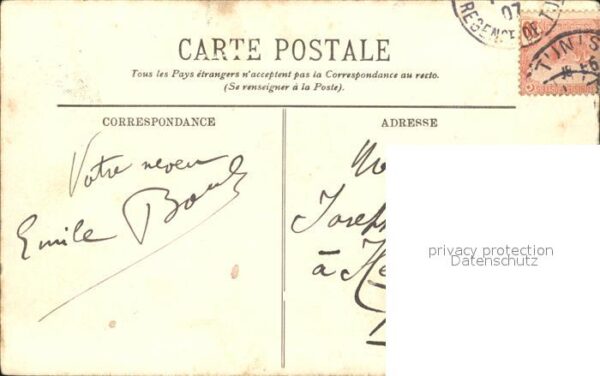 07
REGENCE DE TU
TUNIS
CARTE POSTALE
Tous les Pays étrangers n'acceptent pas la Correspondance au recto.
(Se renseigner à la Poste).
CORRESPONDANCE
Votre neveu
Emile
ADRESSE
Joseph
à
privacy protection
Datenschutz